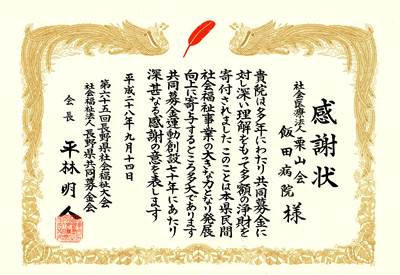 感謝状
社会医療法人 栗山会
飯田病院 様
貴院は多年にわたり共同募金に
対し深い理解をもって多額の浄財を
寄付されました このことは本県民間
社会福祉事業の大きな力となり発展
向上に寄与するところ多大であります
共同募金運動創設七十年にあたり
深甚なる感謝の意を表します
平成二十八年九月十四日
第六十五回長野県社会福祉大会
社会福祉法人 長野県共同募金会
会長 平林明人